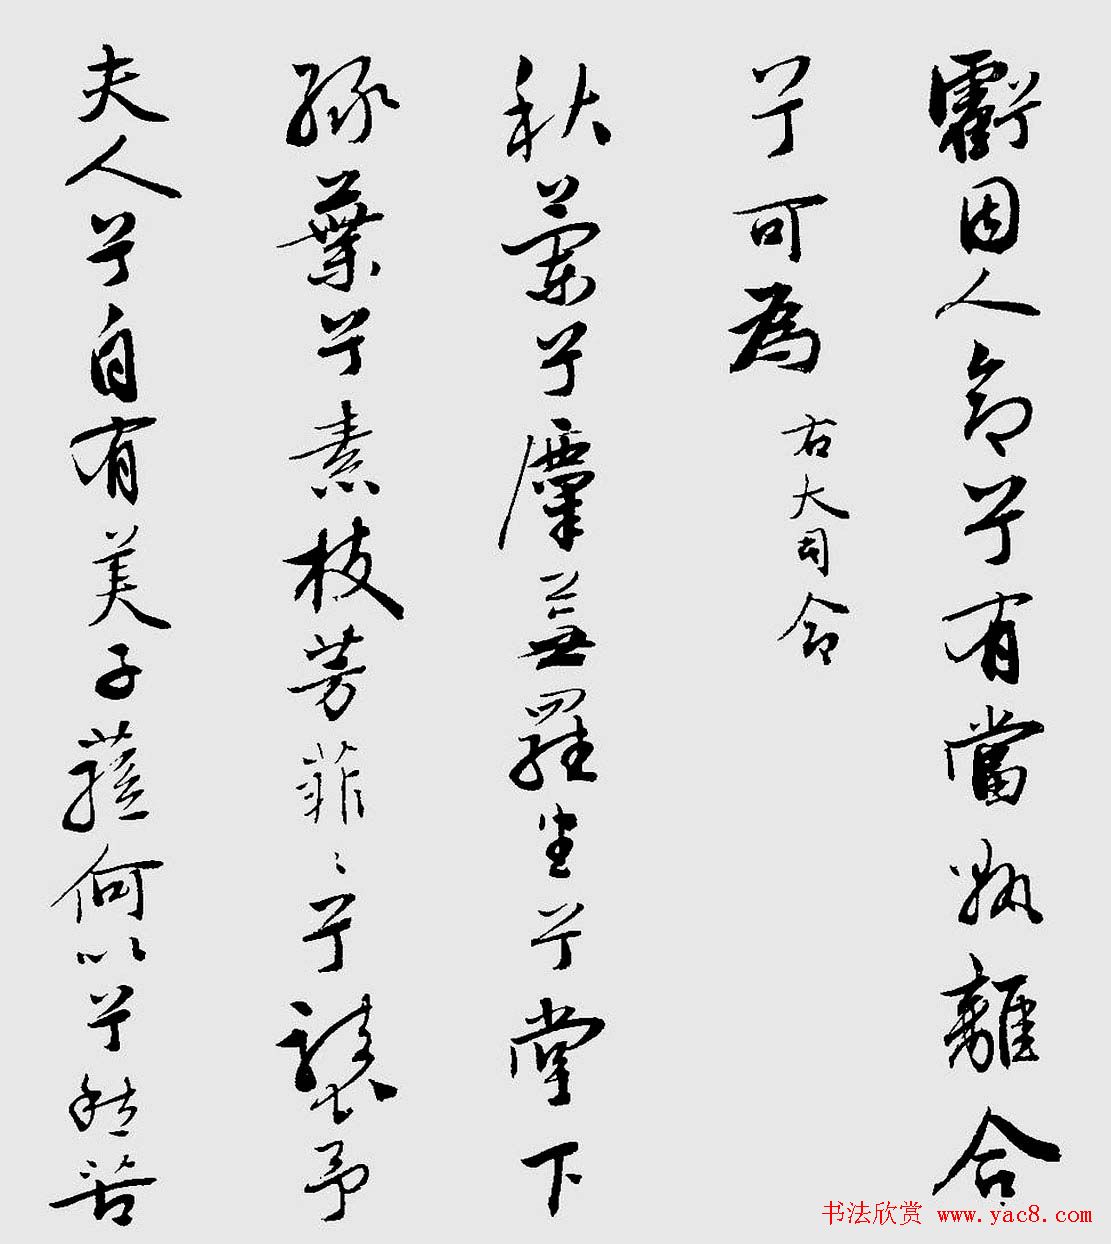 虧固人命兮有當孰離合
兮可為
右大司命
秋蘭兮麋蕪羅生兮堂下
綠葉兮素枝芳菲〻兮襲予
夫人兮自有美子蓀何以兮愁苦
书法欣赏 www.yac8.com